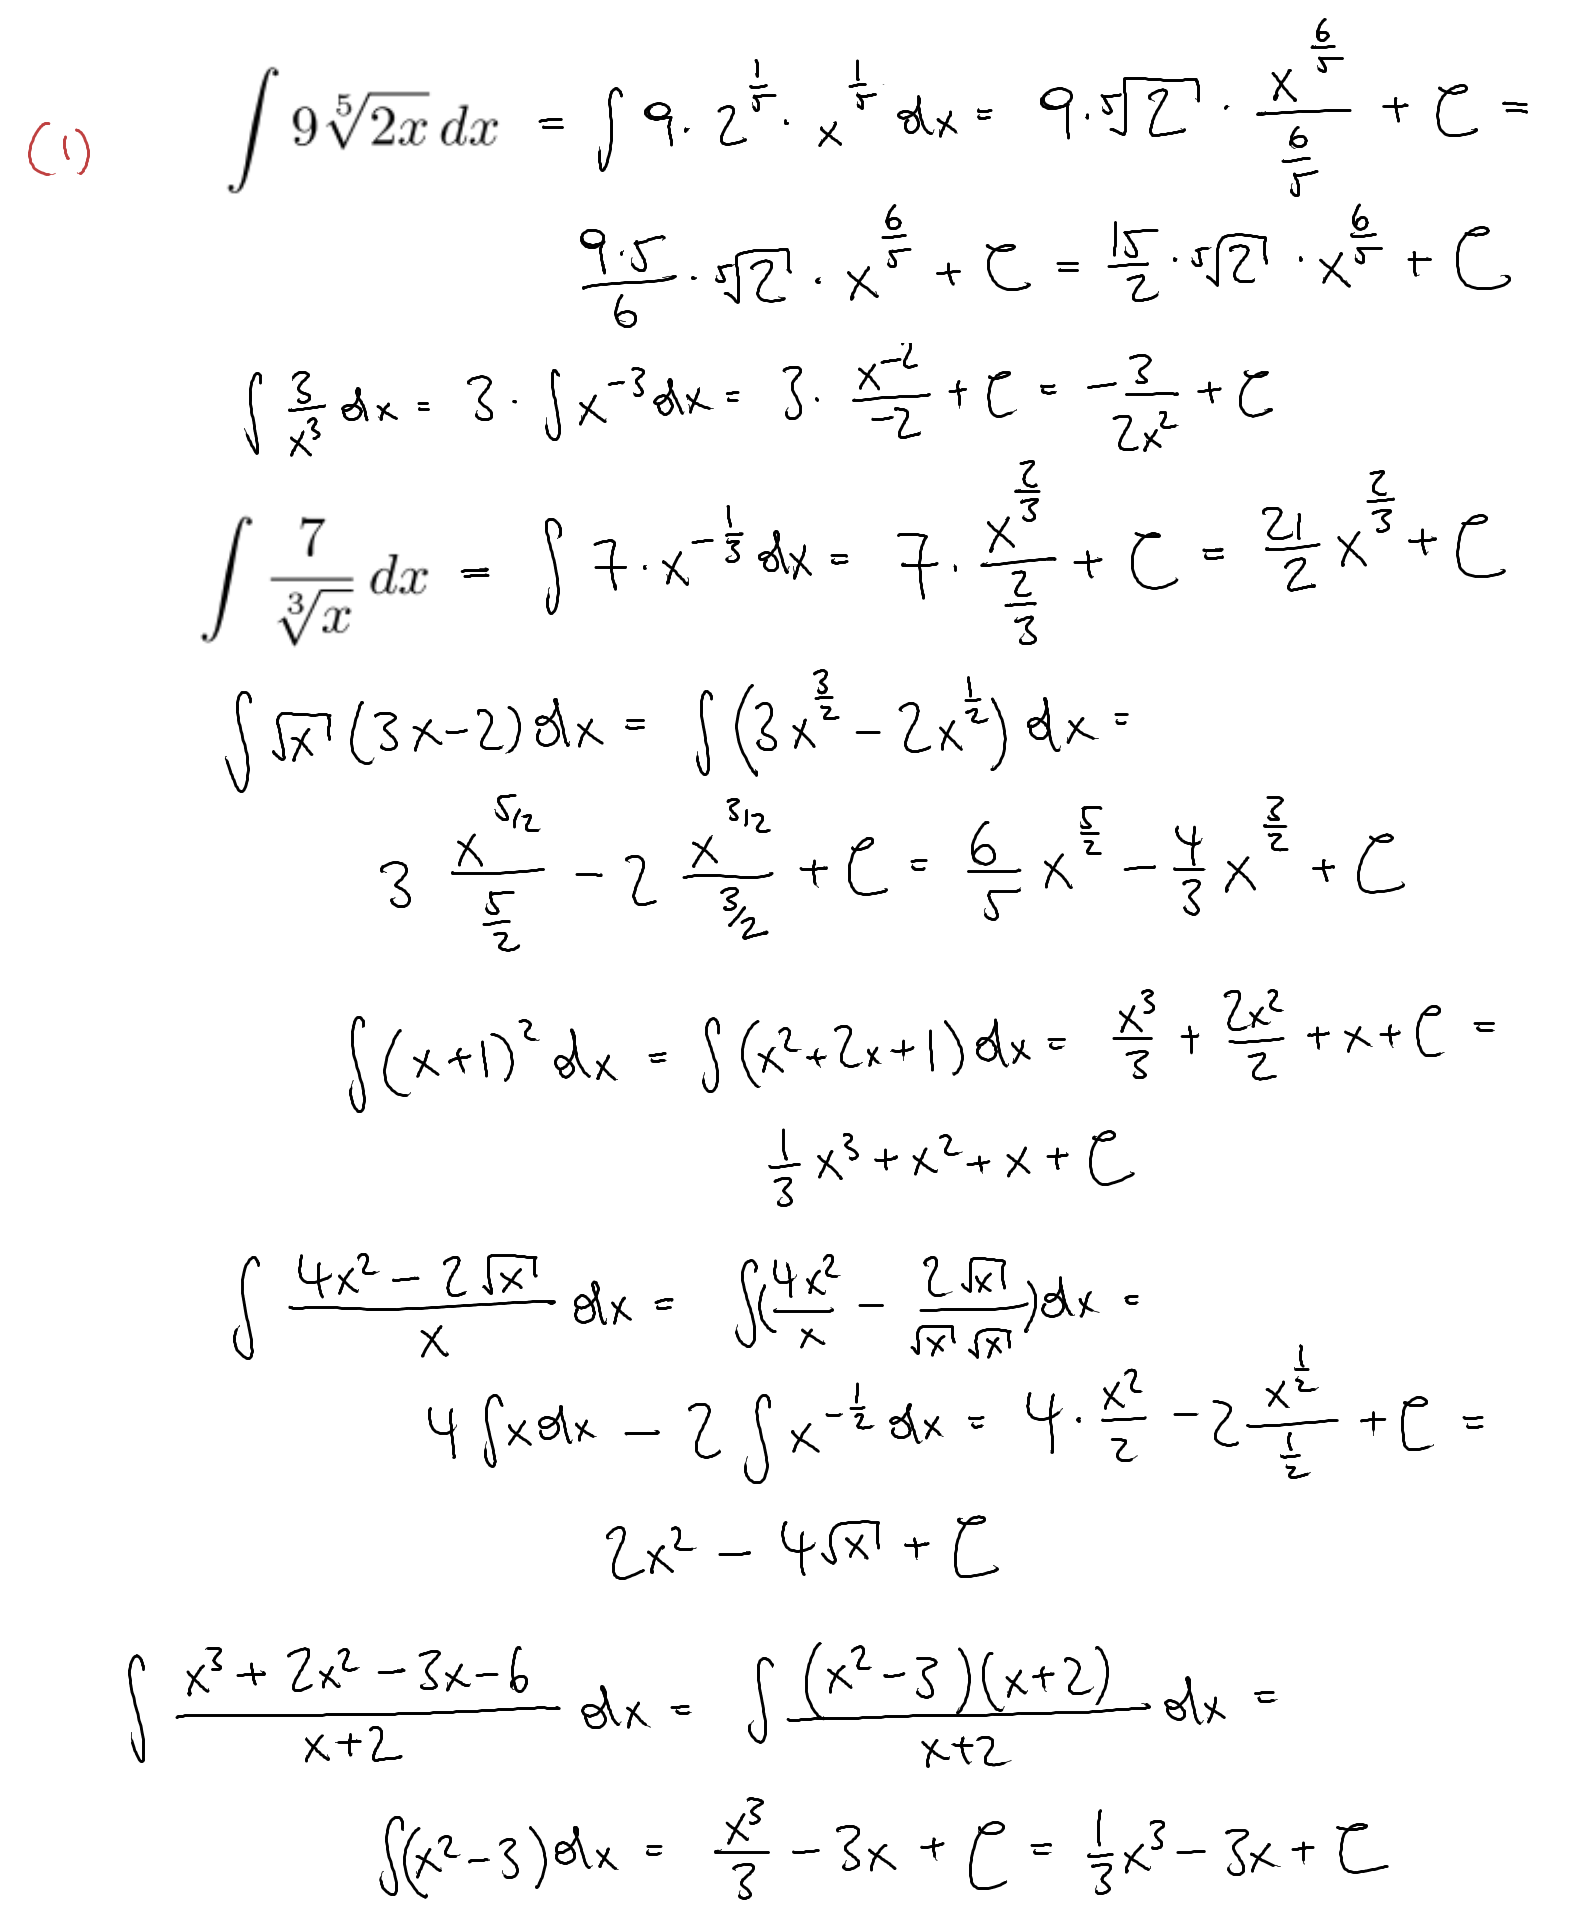 (1) ∫ 9 ⁵√(2x) dx = ∫ 9 · 2^(1/5) · x^(1/5) dx = 9 · ⁵√2 · x^(6/5) / (6/5) + C =
9·5/6 · ⁵√2 · x^(6/5) + C = 15/2 · ⁵√2 · x^(6/5) + C
∫ 3/x³ dx = 3 · ∫ x⁻³ dx = 3 · x⁻²/−2 + C = −3/(2x²) + C
∫ 7/³√x dx = ∫ 7 · x^(−1/3) dx = 7 · x^(2/3) / (2/3) + C = 21/2 x^(2/3) + C
∫ √x (3x−2) dx = ∫ (3x^(3/2) − 2x^(1/2)) dx =
3 x^(5/2) / (5/2) − 2 x^(3/2) / (3/2) + C = 6/5 x^(5/2) − 4/3 x^(3/2) + C
∫ (x+1)² dx = ∫ (x²+2x+1) dx = x³/3 + 2x²/2 + x + C =
1/3 x³ + x² + x + C
∫ (4x² − 2√x)/x dx = ∫ (4x²/x − 2√x/(√x √x)) dx =
4 ∫ x dx − 2 ∫ x^(−1/2) dx = 4 · x²/2 − 2 x^(1/2) / (1/2) + C =
2x² − 4√x + C
∫ (x³ + 2x² − 3x − 6)/(x+2) dx = ∫ (x²−3)(x+2)/(x+2) dx =
∫ (x²−3) dx = x³/3 − 3x + C = 1/3 x³ − 3x + C